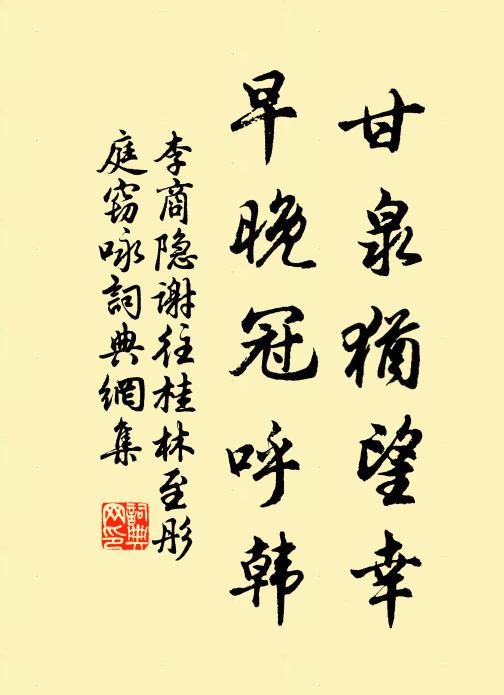 甘泉猶望幸
早晚冠呼韩
李商隐谢往桂林至彤
庭窃咏詞典網集
詞典
网印